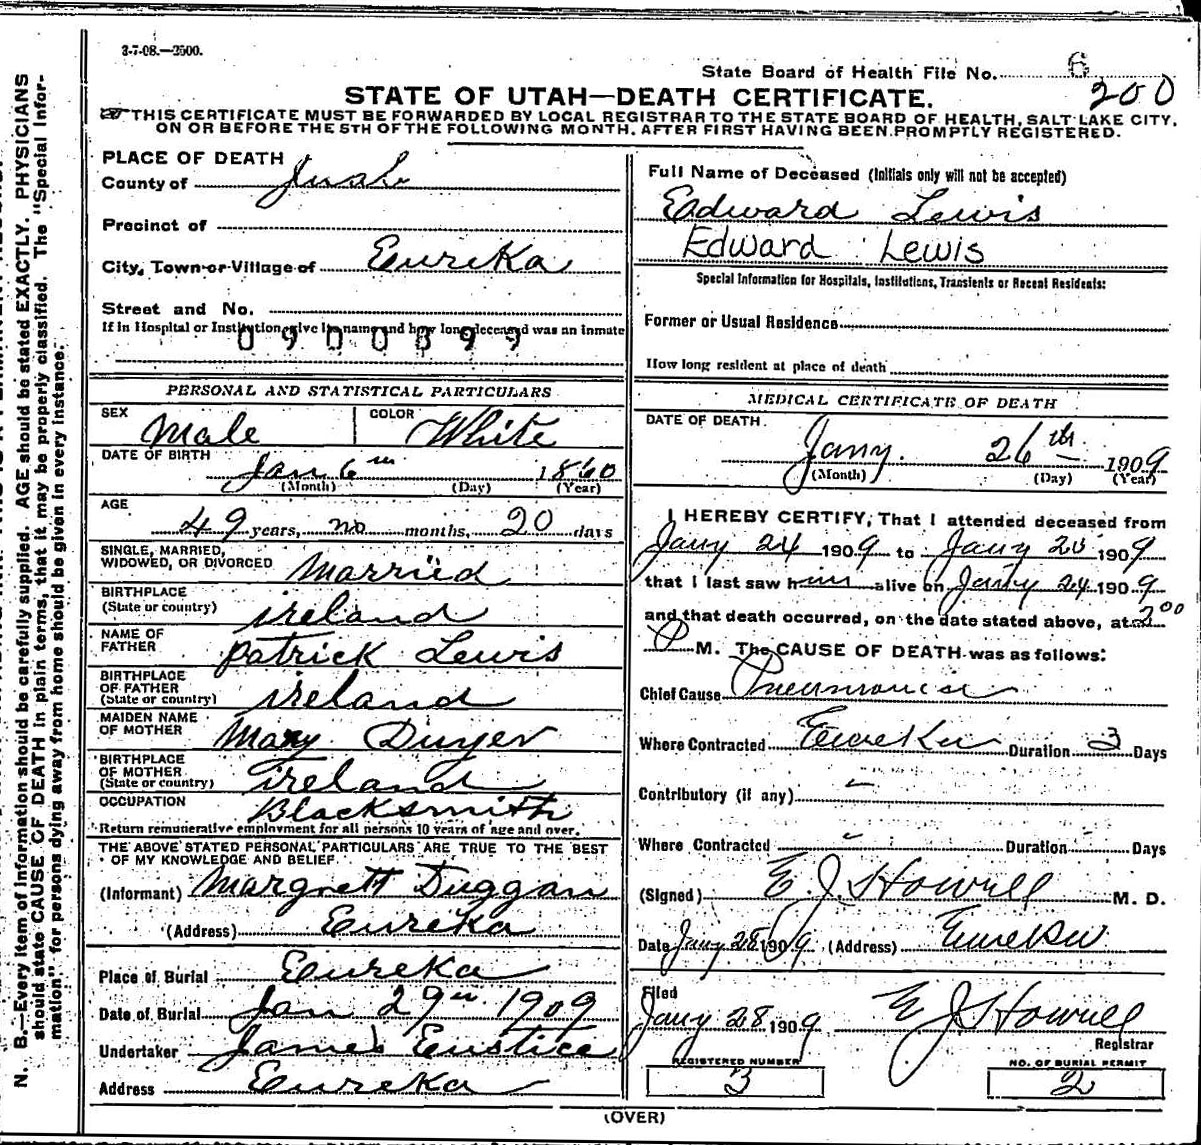 3-7-08.—2500.
State Board of Health File No. 6
200
STATE OF UTAH—DEATH CERTIFICATE.
THIS CERTIFICATE MUST BE FORWARDED BY LOCAL REGISTRAR TO THE STATE BOARD OF HEALTH, SALT LAKE CITY,
ON OR BEFORE THE 5TH OF THE FOLLOWING MONTH, AFTER FIRST HAVING BEEN PROMPTLY REGISTERED.
N. B.—Every item of information should be carefully supplied. AGE should be stated EXACTLY. PHYSICIANS
should state CAUSE OF DEATH in plain terms, that it may be properly classified. The "Special Infor-
mation" for persons dying away from home should be given in every instance.
PLACE OF DEATH
County of Juab
Precinct of
City, Town or Village of Eureka
Street and No.
If in Hospital or Institution, give its name and how long deceased was an inmate
0900899
PERSONAL AND STATISTICAL PARTICULARS
SEX Male COLOR White
DATE OF BIRTH Jan 6th 1860
(Month) (Day) (Year)
AGE
49 years, no months, 20 days
SINGLE, MARRIED,
WIDOWED, OR DIVORCED Married
BIRTHPLACE
(State or country) ireland
NAME OF
FATHER Patrick Lewis
BIRTHPLACE
OF FATHER
(State or country) ireland
MAIDEN NAME
OF MOTHER Mary Duyer
BIRTHPLACE
OF MOTHER
(State or country) ireland
OCCUPATION Blacksmith
Return remunerative employment for all persons 10 years of age and over.
THE ABOVE STATED PERSONAL PARTICULARS ARE TRUE TO THE BEST
OF MY KNOWLEDGE AND BELIEF.
(Informant) Margrett Duggan
(Address) Eureka
Place of Burial Eureka
Date of Burial Jan 29th 1909
Undertaker James Eustice
Address Eureka
Full Name of Deceased (Initials only will not be accepted)
Edward Lewis
Edward Lewis
Special Information for Hospitals, Institutions, Transients or Recent Residents:
Former or Usual Residence
How long resident at place of death
MEDICAL CERTIFICATE OF DEATH
DATE OF DEATH
Jany. 26th 1909
(Month) (Day) (Year)
I HEREBY CERTIFY, That I attended deceased from
Jany 24 1909 to Jany 1909
that I last saw him alive on Jany 24 1909
and that death occurred, on the date stated above, at 2 00
P M. The CAUSE OF DEATH was as follows:
Chief Cause Pneumonia
Where Contracted Eureka Duration 3 Days
Contributory (if any) –
Where Contracted Duration Days
(Signed) E. J. Howell M. D.
Date Jany 28 1909 (Address) Eureka
Filed
Jany 28 1909 E J Howell
Registrar
REGISTERED NUMBER
3
NO. OF BURIAL PERMIT
2
(OVER)